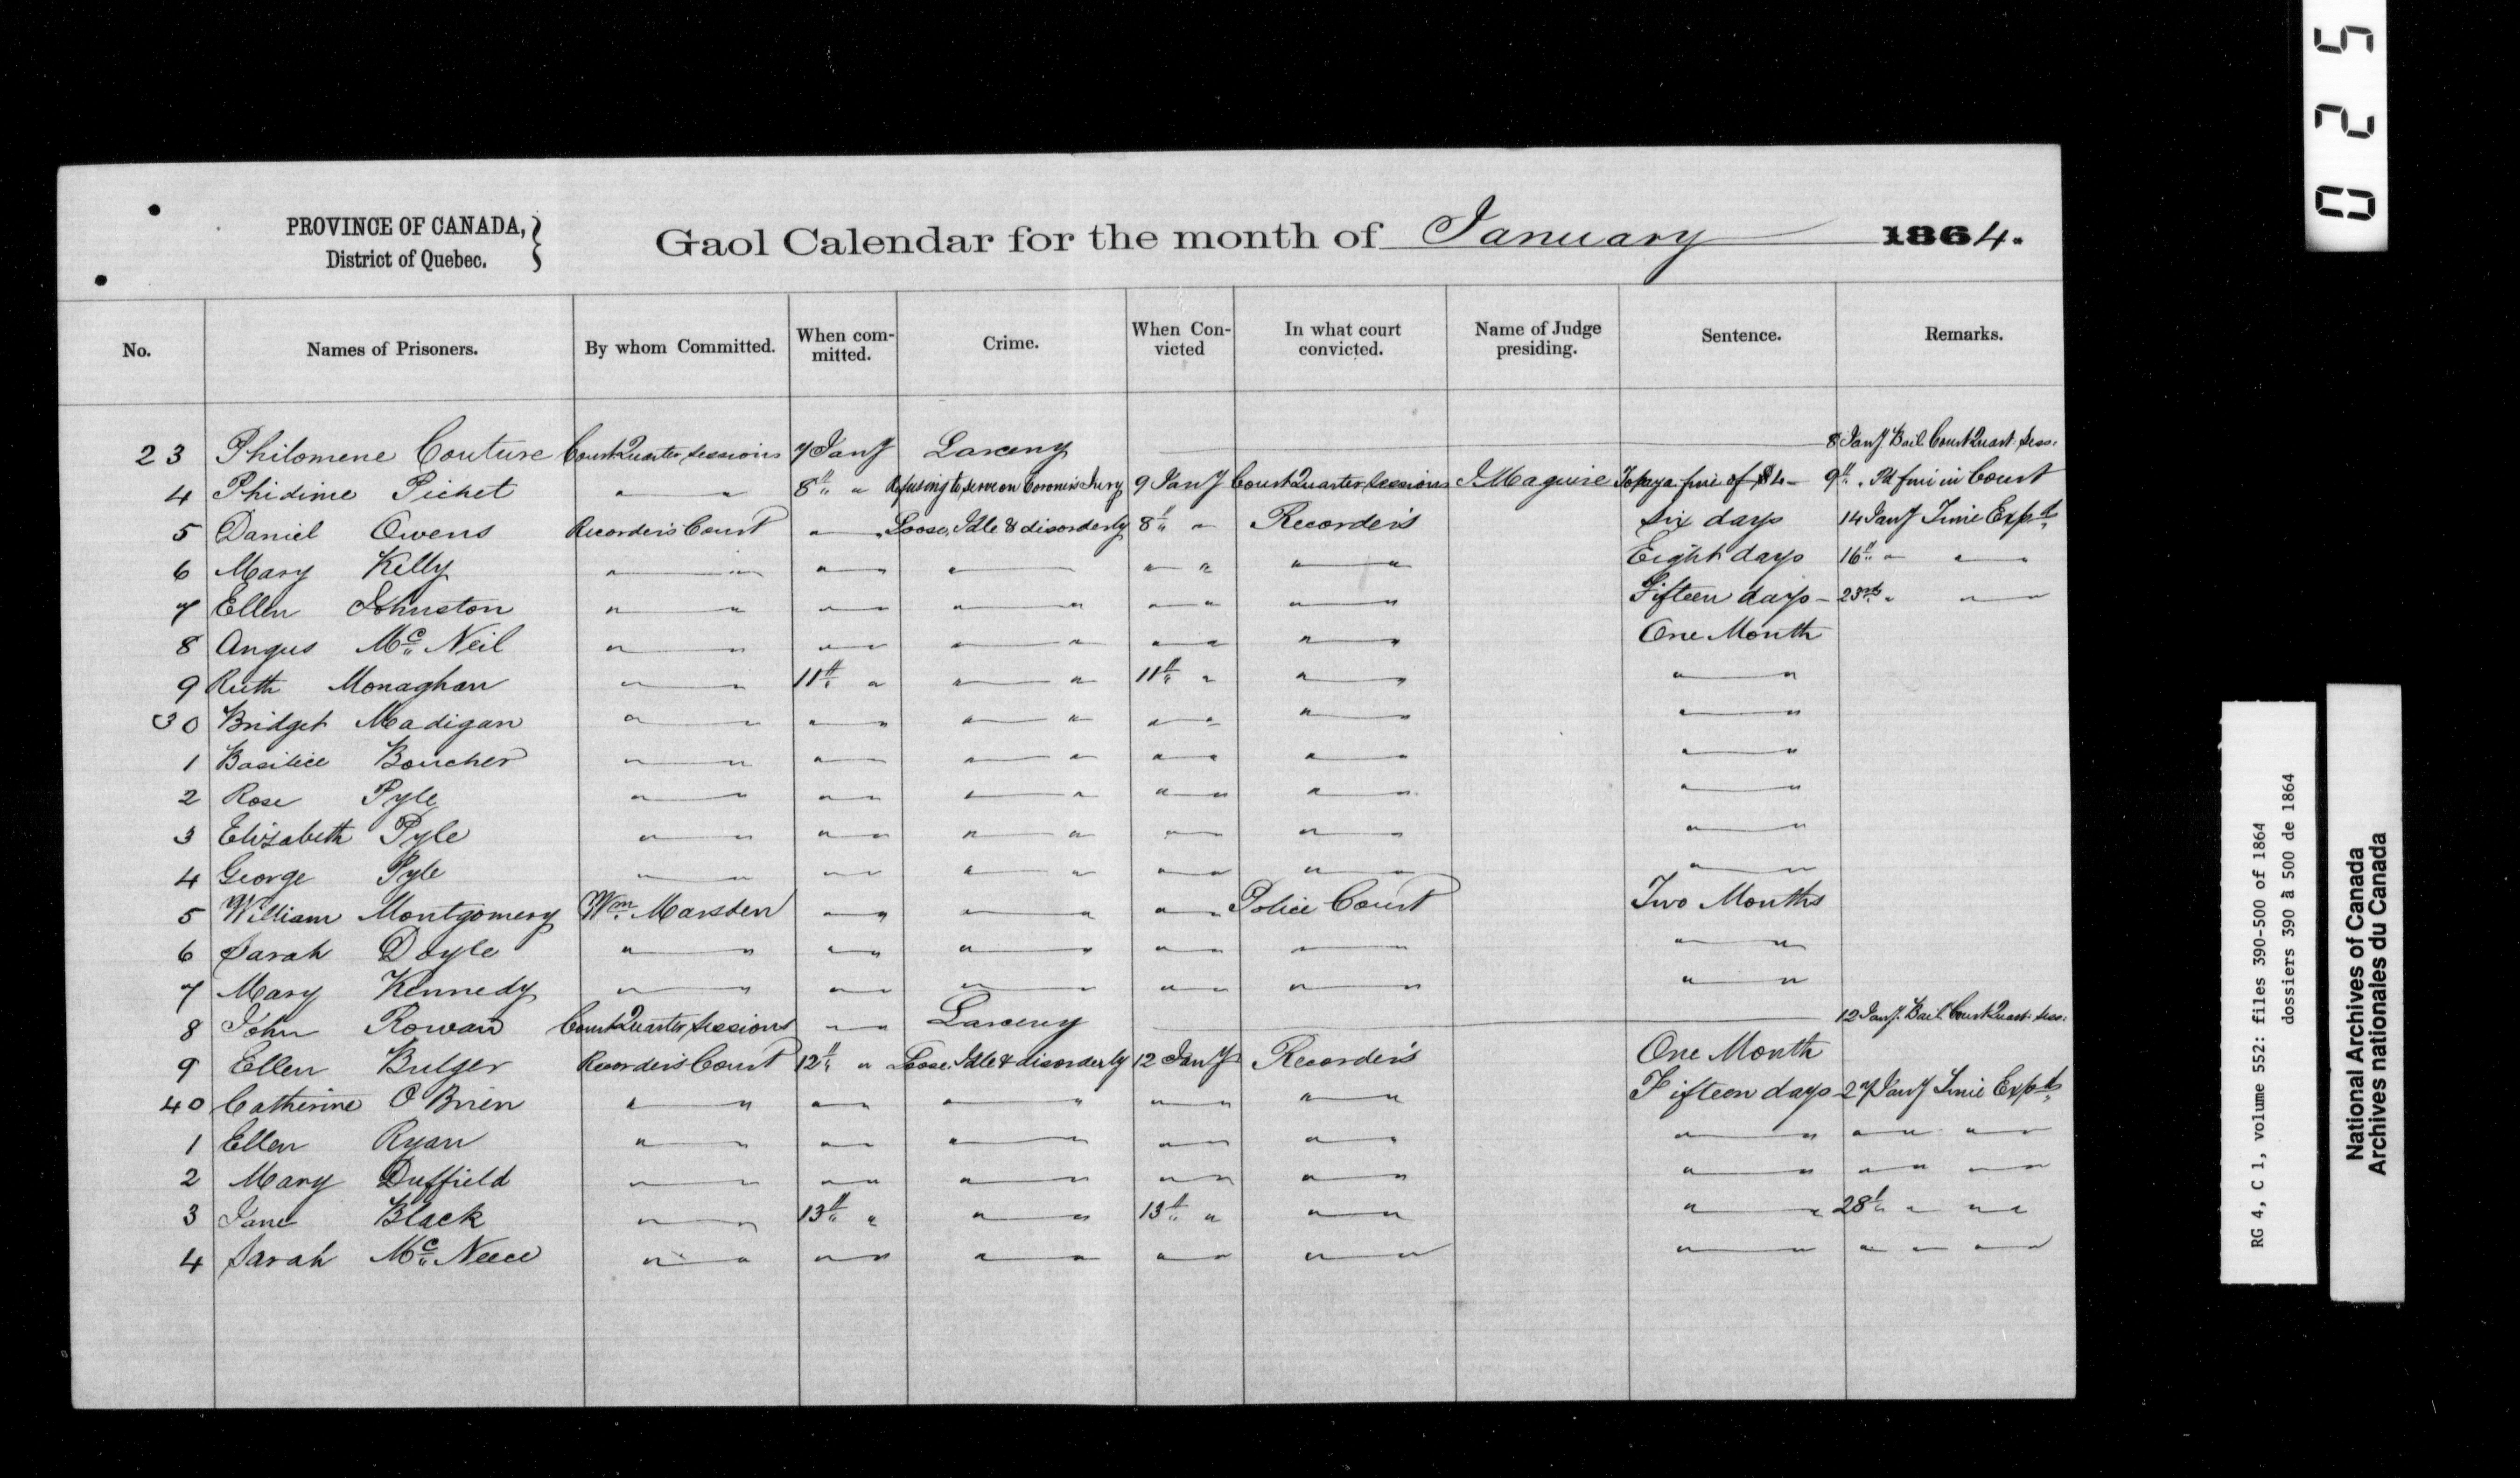 025
PROVINCE OF CANADA,
District of Quebec.
Gaol Calendar for the month of January 1864.
No. Names of Prisoners. By whom Committed. When committed. Crime. When Convicted In what court convicted. Name of Judge presiding. Sentence. Remarks.
23 Philomene Couture Court Quarter Sessions 7 Jany Larceny 8 Jany Bail Court Quart. Sess.
4 Phidime Pichet " " 8th " Refusing to serve on Coroners Jury 9 Jany Court Quarter Sessions J. Maguire To pay a fine of $4 - 9th " Pd fine in Court
5 Daniel Owens Recorder's Court " " Loose, Idle & disorderly 8th " Recorder's Six days 14 Jany Time Expd
6 Mary Kelly " " " " " " " " " Eight days 16th " " "
7 Ellen Johnston " " " " " " " " " " Fifteen days - 23rd " " "
8 Angus Mc Neil " " " " " " " " " " One Month
9 Ruth Monaghan " " 11th " " " 11th " " " " "
30 Bridget Madigan " " " " " " " " " " " "
1 Basilice Boucher " " " " " " " " " " " "
2 Rose Pyle " " " " " " " " " " " "
3 Elizabeth Pyle " " " " " " " " " " " "
4 George Pyle " " " " " " " " " " " "
5 William Montgomery Wm Marsden " " " " " " Police Court Two Months
6 Sarah Doyle " " " " " " " " " " " "
7 Mary Kennedy " " " " " " " " " " " "
8 John Rowan Court Quarter Sessions " " Larceny 12 Jany. Bail Court Quart. Sess.
9 Ellen Bulger Recorder's Court 12th " Loose, Idle & disorderly 12 Jany Recorder's One Month
40 Catherine O'Brien " " " " " " " " " " Fifteen days - 27 Jany Time Expd
1 Ellen Ryan " " " " " " " " " " " " " " " "
2 Mary Duffield " " " " " " " " " " " " " " " "
3 Jane Black " " 13th " " " 13th " " " " " 28th " " "
4 Sarah Mc Neece " " " " " " " " " " " " " " " "
RG 4, C 1, volume 552: files 390-500 of 1864
dossiers 390 à 500 de 1864
National Archives of Canada
Archives nationales du Canada